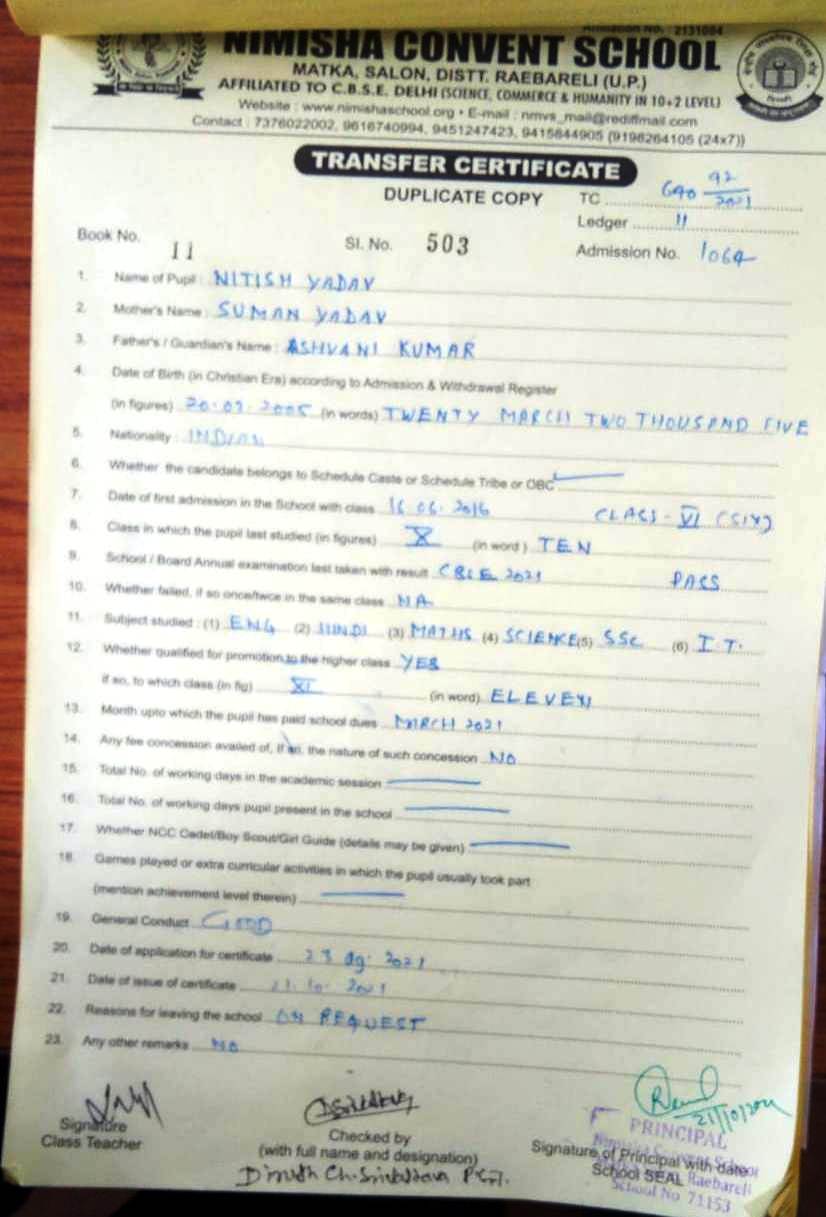 Affiliation No. : 2131004
NIMISHA CONVENT SCHOOL
MATKA, SALON, DISTT. RAEBARELI (U.P.)
AFFILIATED TO C.B.S.E. DELHI (SCIENCE, COMMERCE & HUMANITY IN 10+2 LEVEL)
Website : www.nimishaschool.org • E-mail : nmvs_mail@rediffmail.com
Contact : 7376022002, 9616740994, 9451247423, 9415644905 (9198264105 (24x7))
TRANSFER CERTIFICATE
DUPLICATE COPY TC 92/2021
Ledger 11
Book No. 11 Sl. No. 503 Admission No. 1064
1. Name of Pupil : NITISH YADAV
2. Mother's Name : SUMAN YADAV
3. Father's / Guardian's Name : ASHVANI KUMAR
4. Date of Birth (in Christian Era) according to Admission & Withdrawal Register
(in figures) 20.03.2005 (in words) TWENTY MARCH TWO THOUSAND FIVE
5. Nationality : INDIAN
6. Whether the candidate belongs to Schedule Caste or Schedule Tribe or OBC
7. Date of first admission in the School with class 16.06.2016 CLASS - VI (SIX)
8. Class in which the pupil last studied (in figures) X (in word) TEN
9. School / Board Annual examination last taken with result CBSE 2021 PASS
10. Whether failed, if so once/twice in the same class NA
11. Subject studied : (1) ENG (2) HINDI (3) MATHS (4) SCIENCE (5) SSC (6) I.T.
12. Whether qualified for promotion to the higher class YES
if so, to which class (in fig) XI (in word) ELEVEN
13. Month upto which the pupil has paid school dues MARCH 2021
14. Any fee concession availed of, if so, the nature of such concession NO
15. Total No. of working days in the academic session
16. Total No. of working days pupil present in the school
17. Whether NCC Cadet/Boy Scout/Girl Guide (details may be given)
18. Games played or extra curricular activities in which the pupil usually took part
(mention achievement level therein)
19. General Conduct GOOD
20. Date of application for certificate 2021
21. Date of issue of certificate 21.10.2021
22. Reasons for leaving the school ON REQUEST
23. Any other remarks NO
21/10/2021
Signature
Class Teacher
Checked by
(with full name and designation)
Dinesh Ch. Srivastava PGT.
PRINCIPAL
Nimisha Convent School
Signature of Principal with date
School SEAL
Raebareli
School No 71153